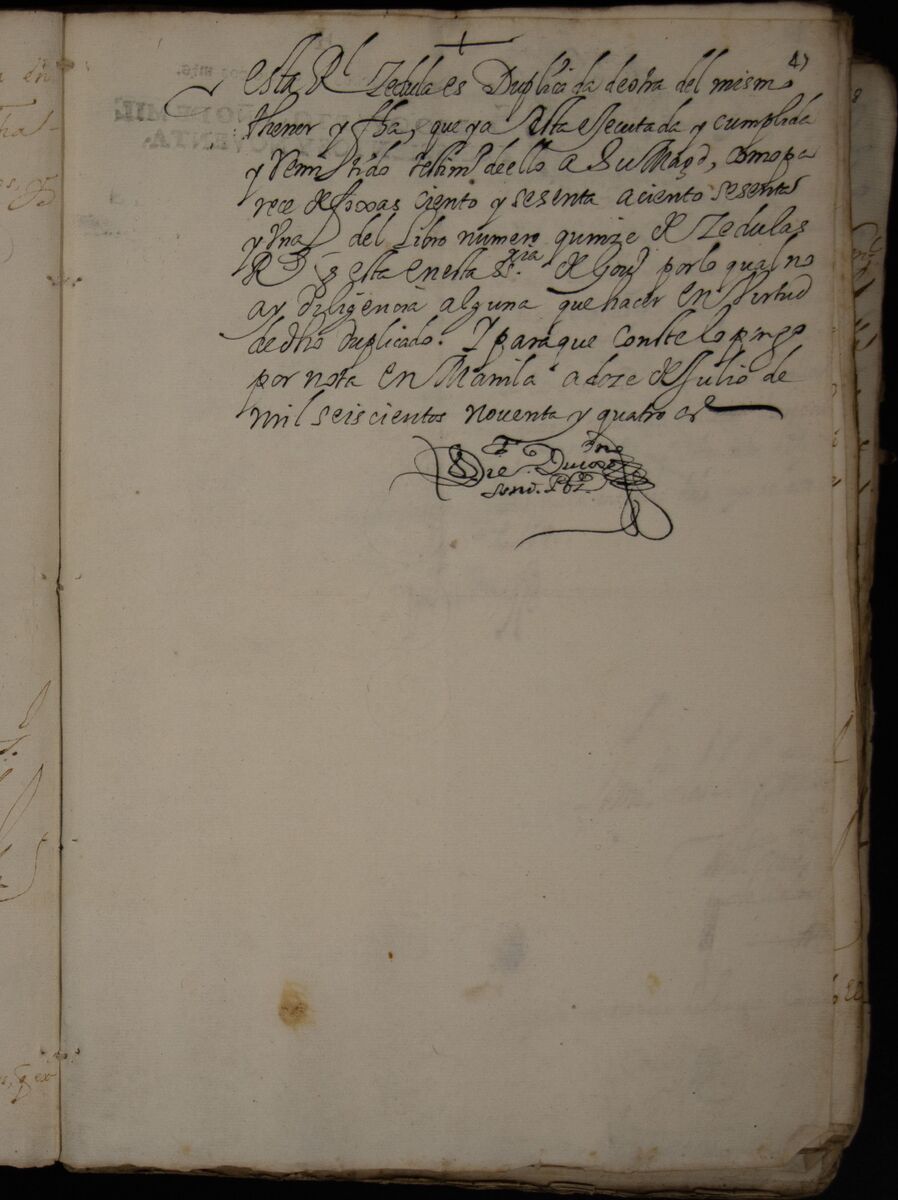 47
Esta Rl Zedula es Duplicada de otra del mismo
thenor y fha, que ya esta executada y cumplida
y Remitido testimo de ello a Su Magd, como pa
rece de foxas ciento y sesenta a ciento sesenta
y Una del Libro numero quinze de Zedulas
Rs q esta en esta Ssria de Govo por lo qual no
ay diligencia alguna que hacer En Virtud
de dho Duplicado. Y para que Conste lo pongo
por nota En Manila a doze de Julio de
mil seiscientos Noventa y quatro